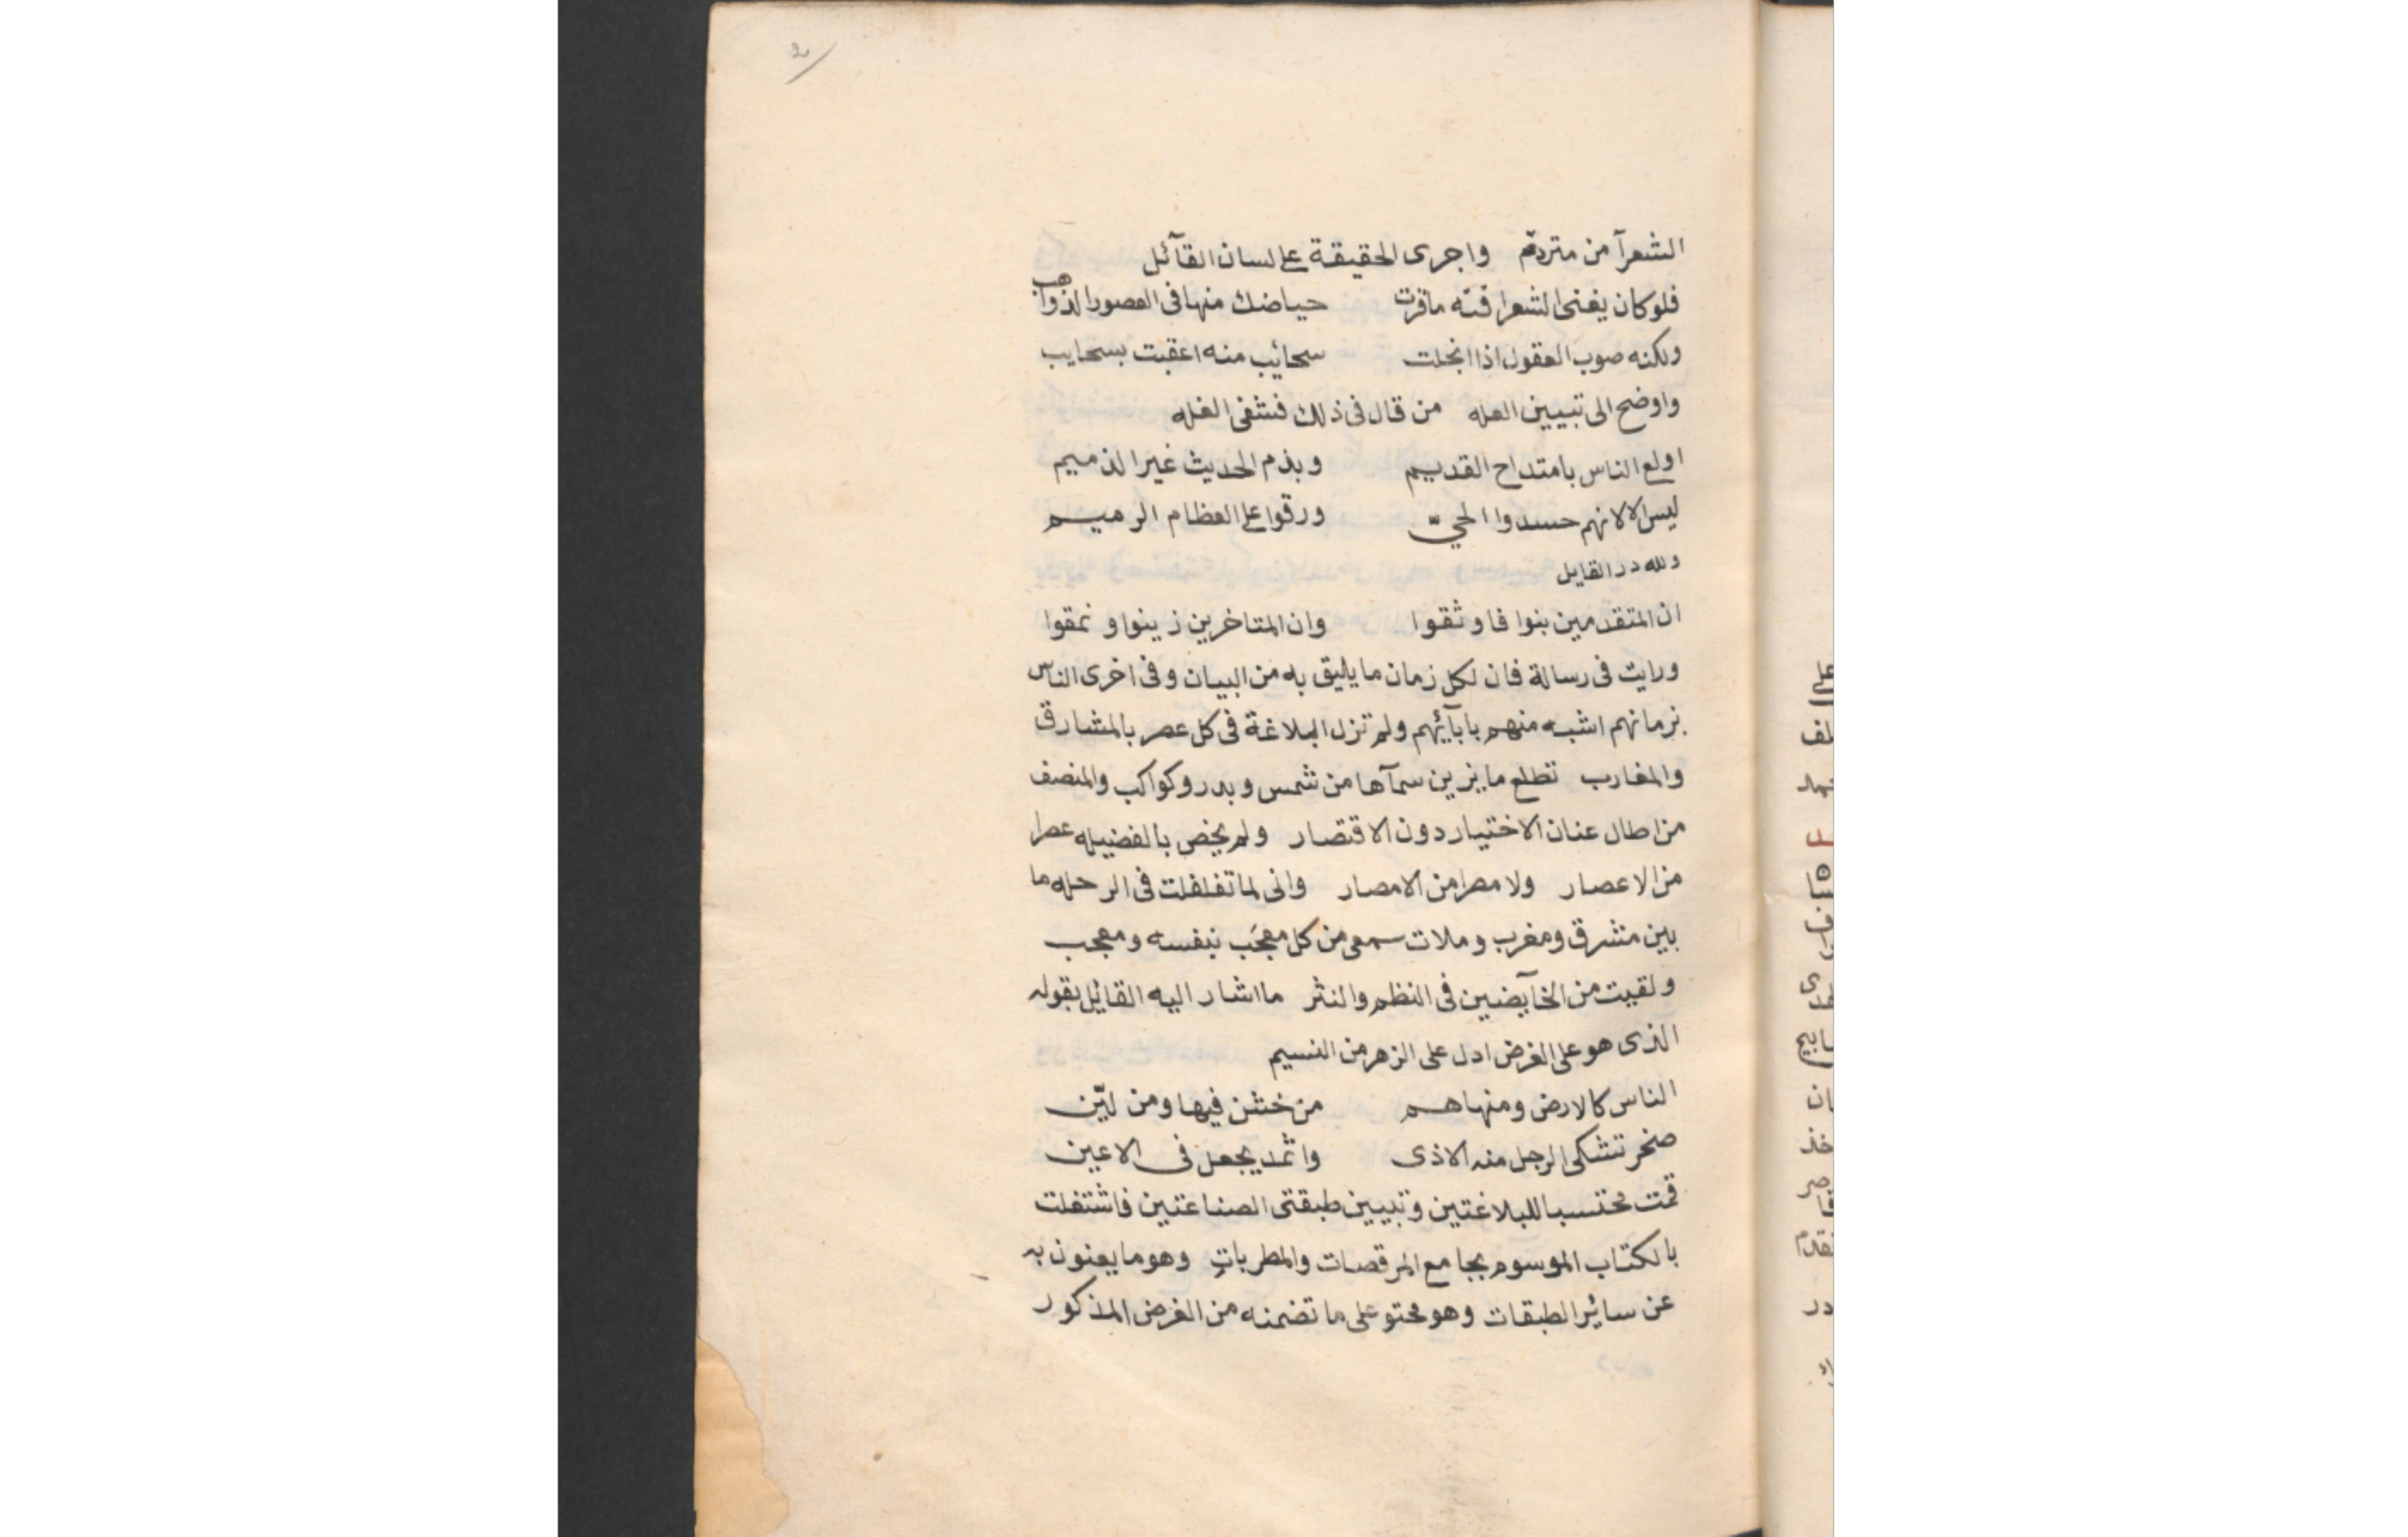 2
الشعرآ من متردم واجرى الحقيقة على لسان القآئل
فلو كان يفنى الشعرا فنته ما قرت حياضك منها فى العصور الذواهب
ولكنه صوب العقول اذا انجلت سحائب منه اعقبت بسحايب
واوضح الى تبيين العله من قال فى ذلك فشفى الغله
اولع الناس بامتداح القديم وبذم الحديث غير الذميم
ليس الا لانهم حسدوا الحيّ ورقوا على العظام الرميم
ولله در القايل
ان المتقدمين بنوا فاوثقوا وان المتاخرين زينوا ونمقوا
ورايت فى رسالة فان لكل زمان ما يليق به من البيان وفى اخرى الناس
بزمانهم اشبه منهم بابآئهم ولم تزل البلاغة فى كل عصر بالمشارق
والمغارب تطلع ما يزين سمآها من شمس وبدر وكواكب والمنصف
من اطال عنان الاختيار دون الاقتصار ولم يخص بالفضيله عصرا
من الاعصار ولا مصرا من الامصار وانى لما تغلغلت فى الرحله ما
بين مشرق ومغرب وملات سمعى من كل معجَب بنفسه ومعجب
ولقيت من الخآيضين فى النظم والنثر ما اشار اليه القائل بقوله
الذى هو على الغرض ادل على الزهر من النسيم
الناس كالارض ومنها هم من خشن فيها ومن ليّن
صخر تشكى الرجل منه الاذى واثمد يجعل فى الاعين
قمت محتسبا للبلاغتين وتبيين طبقتى الصناعتين فاشتغلت
بالكتاب الموسوم بجامع المرقصات والمطربات وهو ما يعنون به
عن سائر الطبقات وهو محتو على ما تضمنه من الغرض المذكور